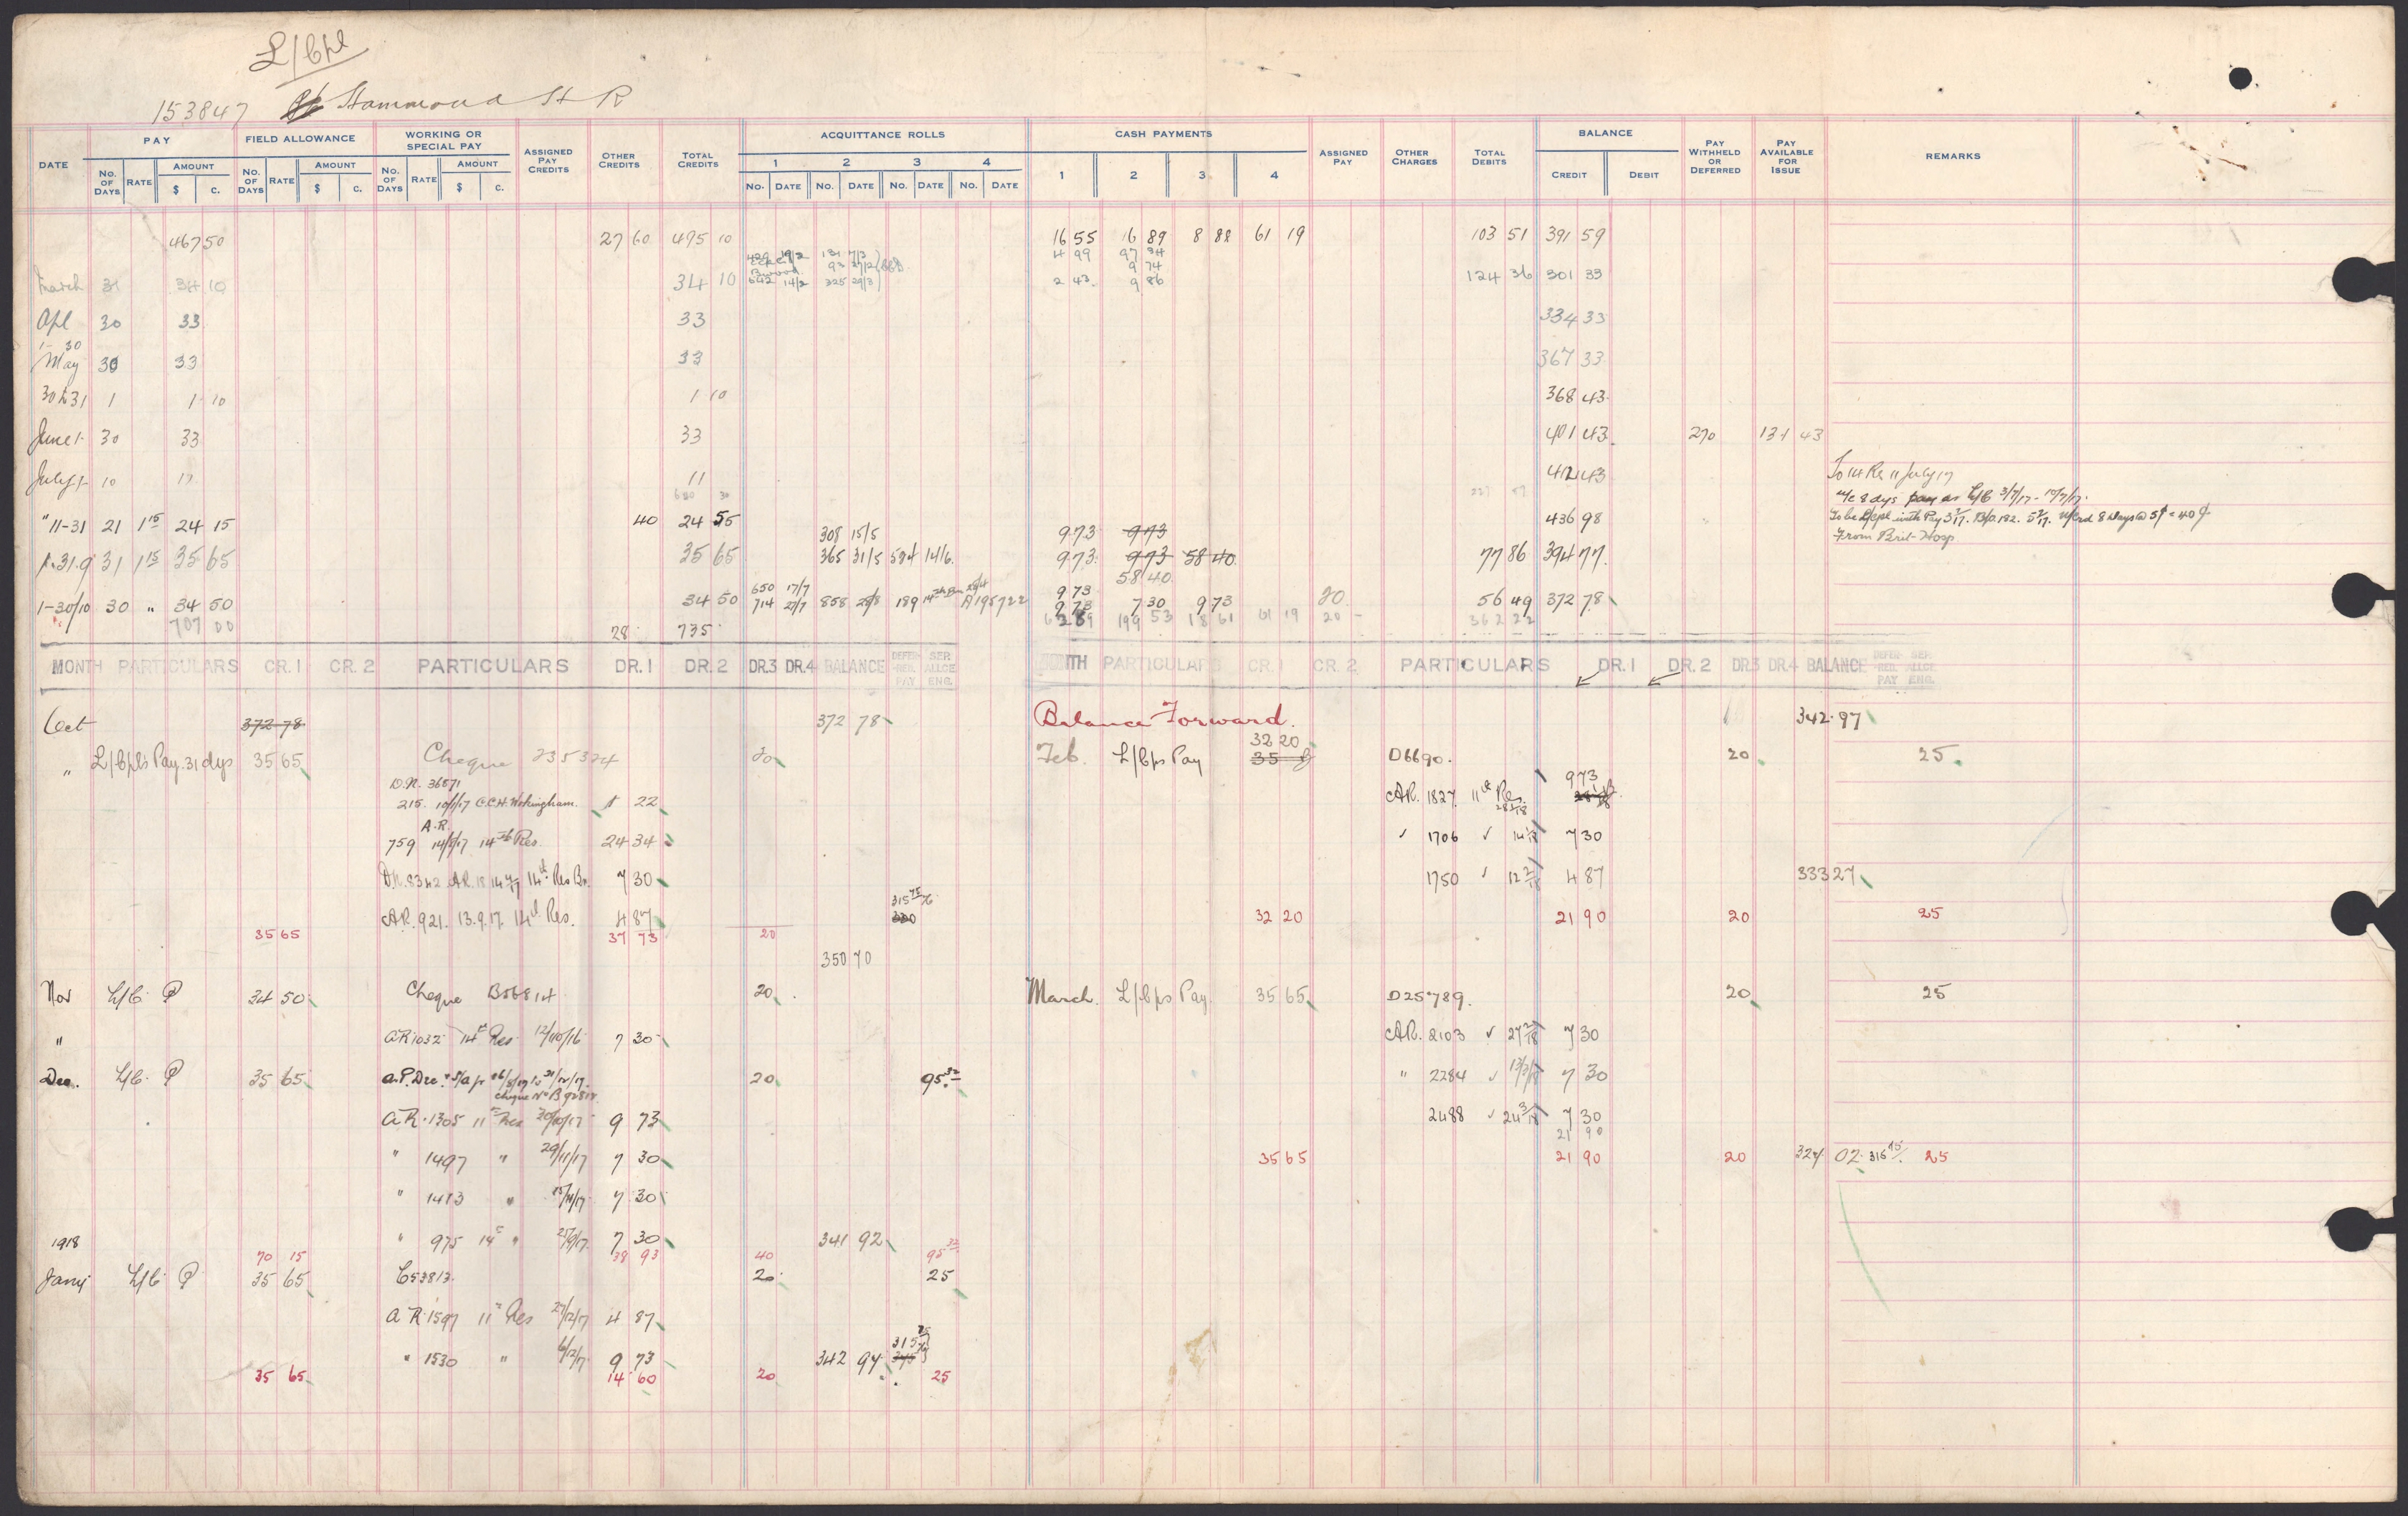 L/Cpl
153847 Hammond H R
DATE PAY FIELD ALLOWANCE WORKING OR SPECIAL PAY ASSIGNED PAY CREDITS OTHER CREDITS TOTAL CREDITS ACQUITTANCE ROLLS CASH PAYMENTS ASSIGNED PAY OTHER CHARGES TOTAL DEBITS BALANCE PAY WITHHELD OR DEFERRED PAY AVAILABLE FOR ISSUE REMARKS
NO. OF DAYS RATE AMOUNT $ C. NO. OF DAYS RATE AMOUNT $ C. NO. OF DAYS RATE AMOUNT $ C. 1 2 3 4 1 2 3 4 CREDIT DEBIT
NO. DATE NO. DATE NO. DATE NO. DATE
467 50 27 60 495 10 16 55 16 89 8 88 61 19 103 51 391 59
429 19/2 131 7/3 4 99 97 34
93 27/2 9 74
March 31 34 10 34 10 642 14/2 325 29/3 2 43 9 86 124 36 301 33
Apl 30 33 33 334 33
1-30
May 30 33 33 367 33
30 to 31 1 1 10 1 10 368 43
June 1- 30 33 33 401 43 270 131 43
July 1- 10 11 11 412 43 To 14 Res 11 July 17
630 30 227 87 u/c 8 dys pay as L/C 3/7/17 - 10/7/17.
" 11-31 21 1 15 24 15 40 24 55 308 15/5 9 73 9 73 436 98 To be L/Cpl with Pay 3/7/17. B/O. 182. 5/7/17. u/Crd 8 Days @ 5¢ = 40¢
From Brit-Hosp
1-31.9 31 1 15 35 65 35 65 365 31/5 584 14/6. 9 73 9 73 58 40 77 86 394 77
58 40
650 17/7 9 73
1-30/10 30 " 34 50 34 50 714 27/7 858 28/8 189 A195722 9 73 7 30 9 73 20 56 49 372 78
707 00 28 735 199 53 18 61 61 19 20 - 362 22
MONTH PARTICULARS CR. 1 CR. 2 PARTICULARS DR. 1 DR. 2 DR.3 DR.4 BALANCE DEFER-RED. PAY SEP. ALLCE ENG. MONTH PARTICULARS CR. 1 CR. 2 PARTICULARS DR. 1 DR. 2 DR.3 DR.4 BALANCE DEFER-RED. PAY SEP. ALLCE ENG.
Oct 372 78 372 78 Balance Forward. 342.97
32 20
" L/Cpls Pay. 31 dys 35 65 Cheque 235324 20 Feb. L/Cps Pay 35 D6690. 20 25
D.R. 36571
215. C.C.H. Wokingham. 22 AR. 1827 11th Res. 9 73
A.R.
759 14/8/17 14th Res. 24 34 " 1706 " 7 30
D.R. 8342 AR. 14th Res Bn. 7 30 1750 " 12 2/18 4 87 333 27
315 75/76
AR. 921. 13.9.17. 14th Res. 4 87 330 32 20 21 90 20 25
35 65 37 73 20
350 70
Nov L/C. P 34 50 Cheque B568 14 20 March. L/Cps Pay 35 65 D25789. 20 25
" AR 1032 14th Res 12/10/16 7 30 AR. 2103 " 27 2/18 7 30
Dec. L/C. P 35 65 a.P. Dec. 31/12/17. 20 95 32 " 2284 " 13/3/18 7 30
Cheque No
AR. 1305 11th Res 30/10/17 9 73 2488 " 24 3/18 7 30
21 90
" 1497 " 29/11/17 7 30 35 65 21 90 20 324 02 316 15 25
" 1413 " 15/11/17 7 30
1918 " 975 14th " 25/9/17 7 30 341 92
70 15 38 93 40 95 32
Jany L/C. P 35 65 C53813. 20 25
AR. 1597 11th Res 27/12/17 4 87
315 75/76
" 1530 " 6/12/17 9 73 342 97 345
35 65 14 60 20 25